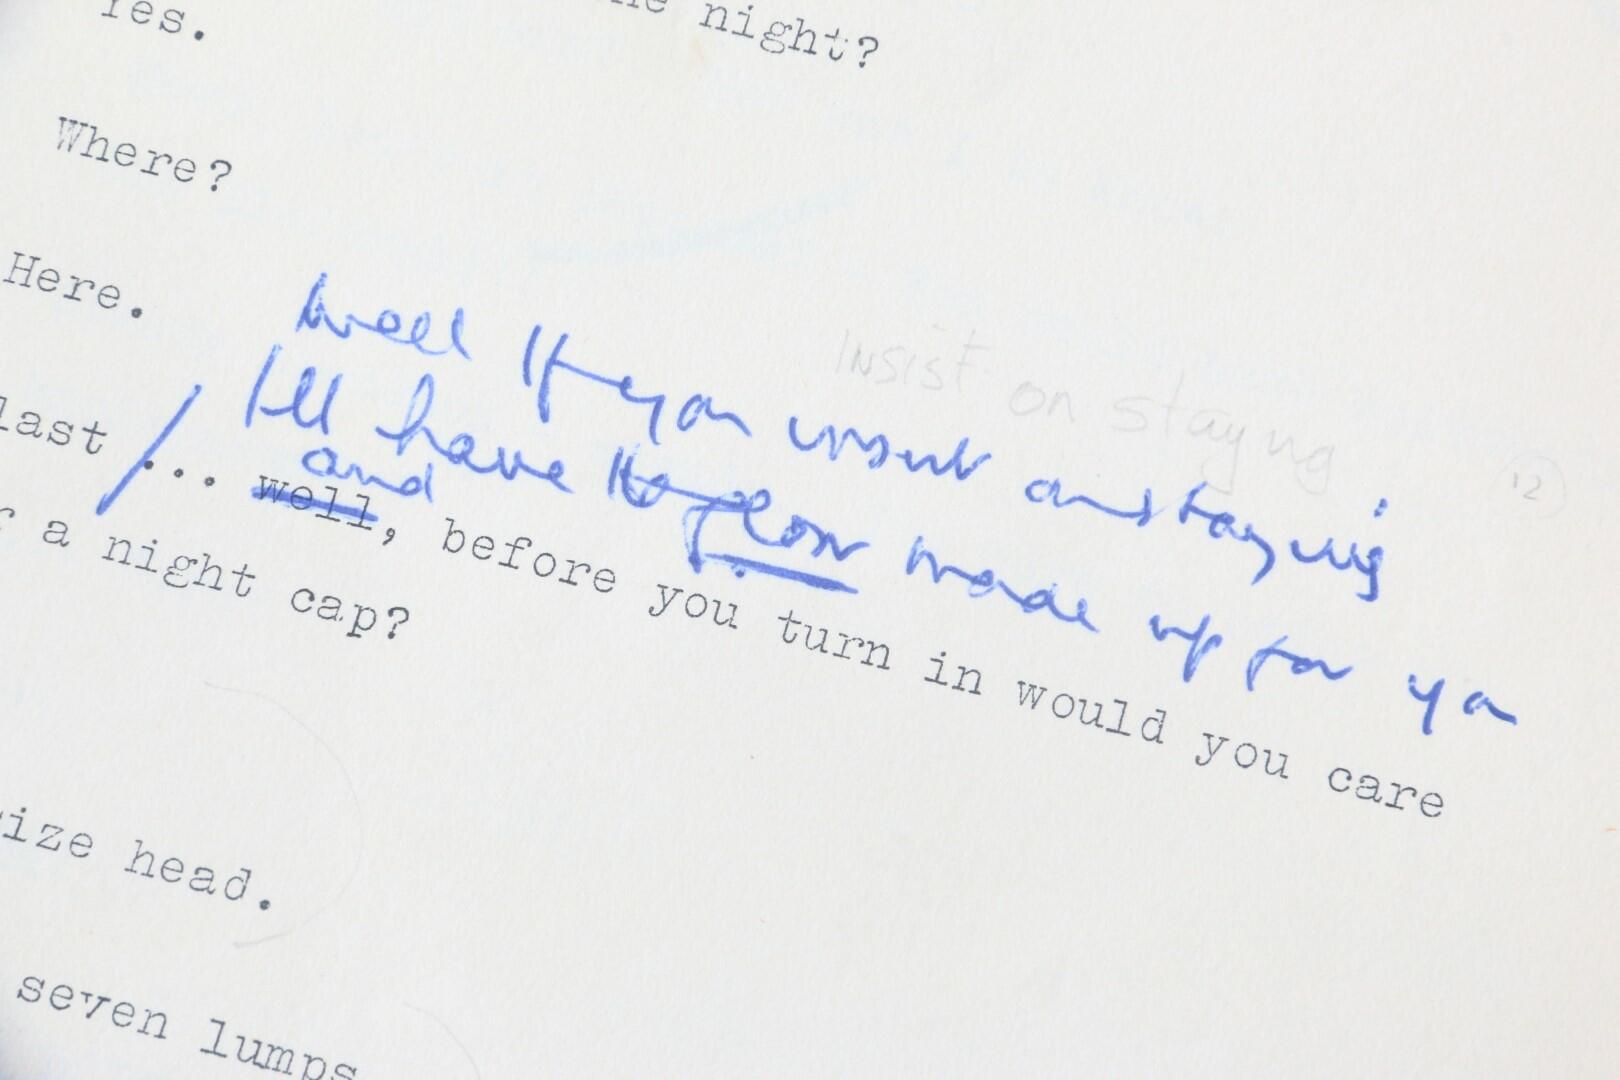 night?
Yes.
Where?
Here.
well If you insist on staying
INSIST on staying
12
I'll have the floor made up for you
and
last ... well, before you turn in would you care
r a night cap?
size head.
seven lumps